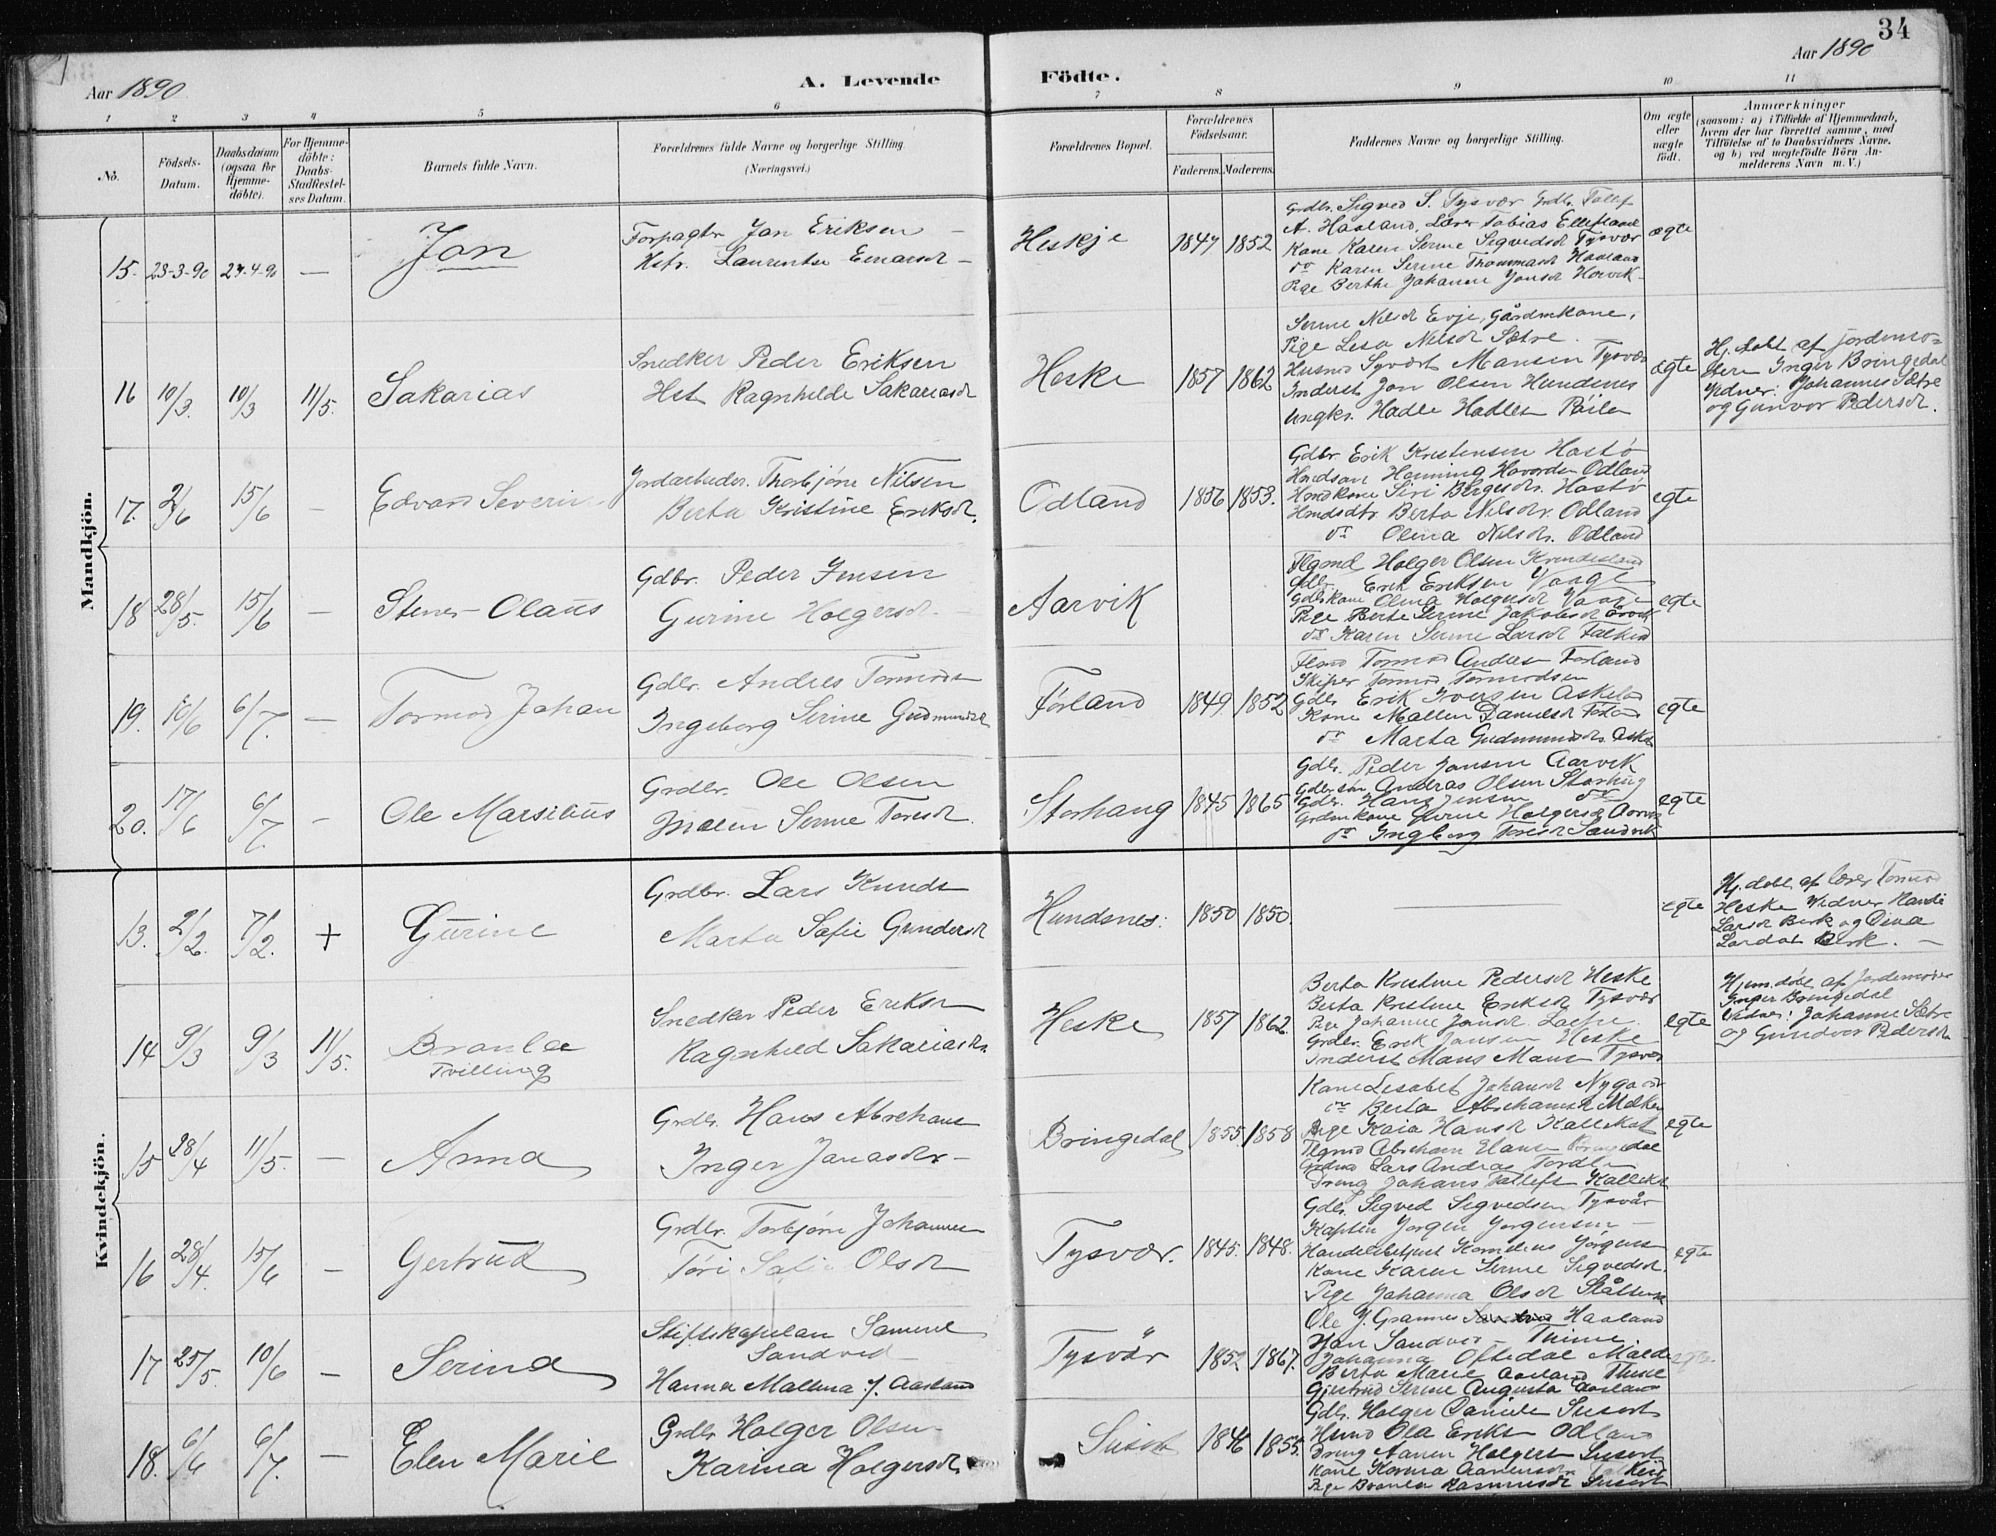 34
Aar 1890
A. Levende
Födte.
Aar 1890
1 2 3 4 5 6 7 8 9 10 11
No.
Födsels-
Datum.
Daabsdatum
(ogsaa for
Hjemme-
döbte).
For Hjemme-
döbte:
Daabs-
Stadfæstel-
ses Datum.
Barnets fulde Navn.
Forældrenes fulde Navne og borgerlige Stilling.
(Næringsvei.)
Forældrenes Bopæl.
Forældrenes
Födselsaar.
Faderens. Moderens.
Faddernes Navne og borgerlige Stilling.
Om ægte
eller
uægte
födt.
Anmærkninger
(saasom: a) i Tilfælde af Hjemmedaab,
hvem der har forrettet samme, med
Tilföielse af to Daabsvidners Navne,
og b) ved uægtefödte Börn An-
melderens Navn m. V.)
Mandkjön.
15. 23-3-90 27-4-90 —
Jan
Forpagtr Jan Eriksen —
Hstr. Laurentse Einarsdt —
Heskje
1847 1852
Grdbr. Sigved S. Tysvær Grdbr. Tollef
A. Haaland, Lærer Tobias Elleflaadt
Kone Karen Serine Sigvedsdt Tysvær
do Karen Serine Thommasdt Haaland
Pige Berthe Johanne Jonsdt Hervik
ægte
16 10/3. 10/3 11/5.
Sakarias
Snedker Peder Eriksen
Hst Ragnhilde Sakariasdt
Heske
1857 1862
Serine Nilsdt Evje, Gårdmkone,
Pige Lesa Nilsdt Sætre.
Husmd Syvert Mansen Tysvær
Inderst Jon Olsen Hundsnes
Ungkr. Hadle Hadlesn
ægte
Hj. døbt af jordemo-
dern Inger Bringedal
Vidner: Johannes Sætre
og Gunvor Pedersdt.
17. 2/6 15/6 —
Edvard Severin
Jordarbeider. Thorbjørn Nilsen
Berta Kristine Eriksdt.
Odland
1856 1853.
Gdbr Erik Kristensen Hastø
Henning Havordsn Odland
Siri Børgesdt. Hastø
Berta Nilsdt. Odland
do Olina Nilsdt. Odland
egte
18 28/5. 15/6 —
Stener Olaus
Gdbr. Peder Jensen
Gurine Holgersdt —
Aarvik
Holger Olsen
Gdbr Erik Eriksen Vaage
Gdbrkone Olina Holgersdt Vaage
Pige Berte Serine Jakobsdt Årvik
do Karen Serine Larsdt Falkeid
egte
19. 10/6 6/7. —
Tormod Johan
Gdbr. Andres Tormods
Ingeborg Serine Gudmundsdt
Førland
1849. 1852
Tormod Andresn Førland
Skiper Tormod Tormodsen
Gdbr Erik Iversen Askeland
Kone Mallene Danielsdt
do Marta Gudmundsdt.
egte
20. 17/6 6/7. —
Ole Marsilius
Grdbr. Ole Olsen
Malene Serine Toresdt.
Storhaug
1845 1865
Gdbr. Peder Jensen Aarvik
Gdbr søn Andreas Olsen Storhaug
Gdbr. Hans Jensen do
Grdmkone Gurine Holgersdt Aarvik
do Ingborg Toresdt Sandvik
egte
Kvindekjön.
13. 2/2. 7/2. +
Gurine
Grdbr. Lars Knuds
Marta Sofie Gundersdt
Hundsnes.
1850 1850.
egte
Hj. døbt af lærer Tormod
Heske Vidner
Larsdt Berk og Dina
Larsdt Berk. —
14 9/3 9/3 11/5.
Bronlee
Tvilling
Snedker Peder Eriksn
Ragnhild Sakariasdt.
Heske
1857 1862
Berta Kristine Pedersdt Heske
Berta Kristine Eriksdt Tysvær
Pige Johanne Jonsdt
Grdbr. Erik Jansen Heske
Inderst Mans Mansn Tysvær
egte
Hjem.døbt af Jordemoder
Inger Bringedal
Vidner: Johanne Sætre
og Gundvor Pedersdt
15 28/4 11/5. —
Anna
Grdbr. Hans Abrehams
Inger Jonasdtr —
Bringedal
1855. 1858
Kone Lesabet Johansdt Nygaard
do Berta Abrehamsdt
Pige Kaia Hansdt
Abreham Hansn Bringedal
Lars Andreas
Dreng Johans Tollefs
egte
16 28/4. 15/6 —
Gertrud
Grdbr. Torbjørn Johannes
Tøri Sofie Olsdt
Tysvær.
1845. 1848.
Gdbr. Sigved Sigvedsen Tysvår
Kaptein Jørgen Jørgensen —
Jørgens
Kone Karen Serine Sigvedsdt.
Pige Johanna Olsdt
egte
17 25/5. 10/6 —
Serina
Stiftskapelan Samuel
Sandved
Hanna Mallena f. Aasland
Tysvår
1852 1867.
Ole G. Grannes Haaland
Jan Sandved — Thime.
Johanna Oftedal
Berta Marie Aasland Thime
Gjertrud Serine Augusta Aasland
egte.
18. 6/6 6/7. —
Elen Marie
Grdbr Holger Olsen
Karina Holgersdt.
Susort
1846 1855.
Gdbr. Holger Daniels Susort
Ola Eriks Odland
Dreng Aanen Holgers Susort
Kone Korina Aanensdt
Pige Rasmusdt Susort